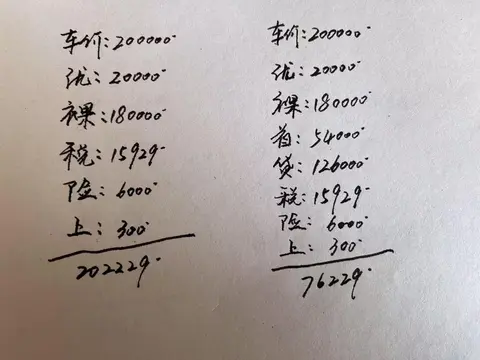 车价:200000
优:20000
裸:180000
税:15929
险:6000
上:300
202229
车价:200000
优:20000
裸:180000
首:54000
贷:126000
税:15929
险:6000
上:300
76229